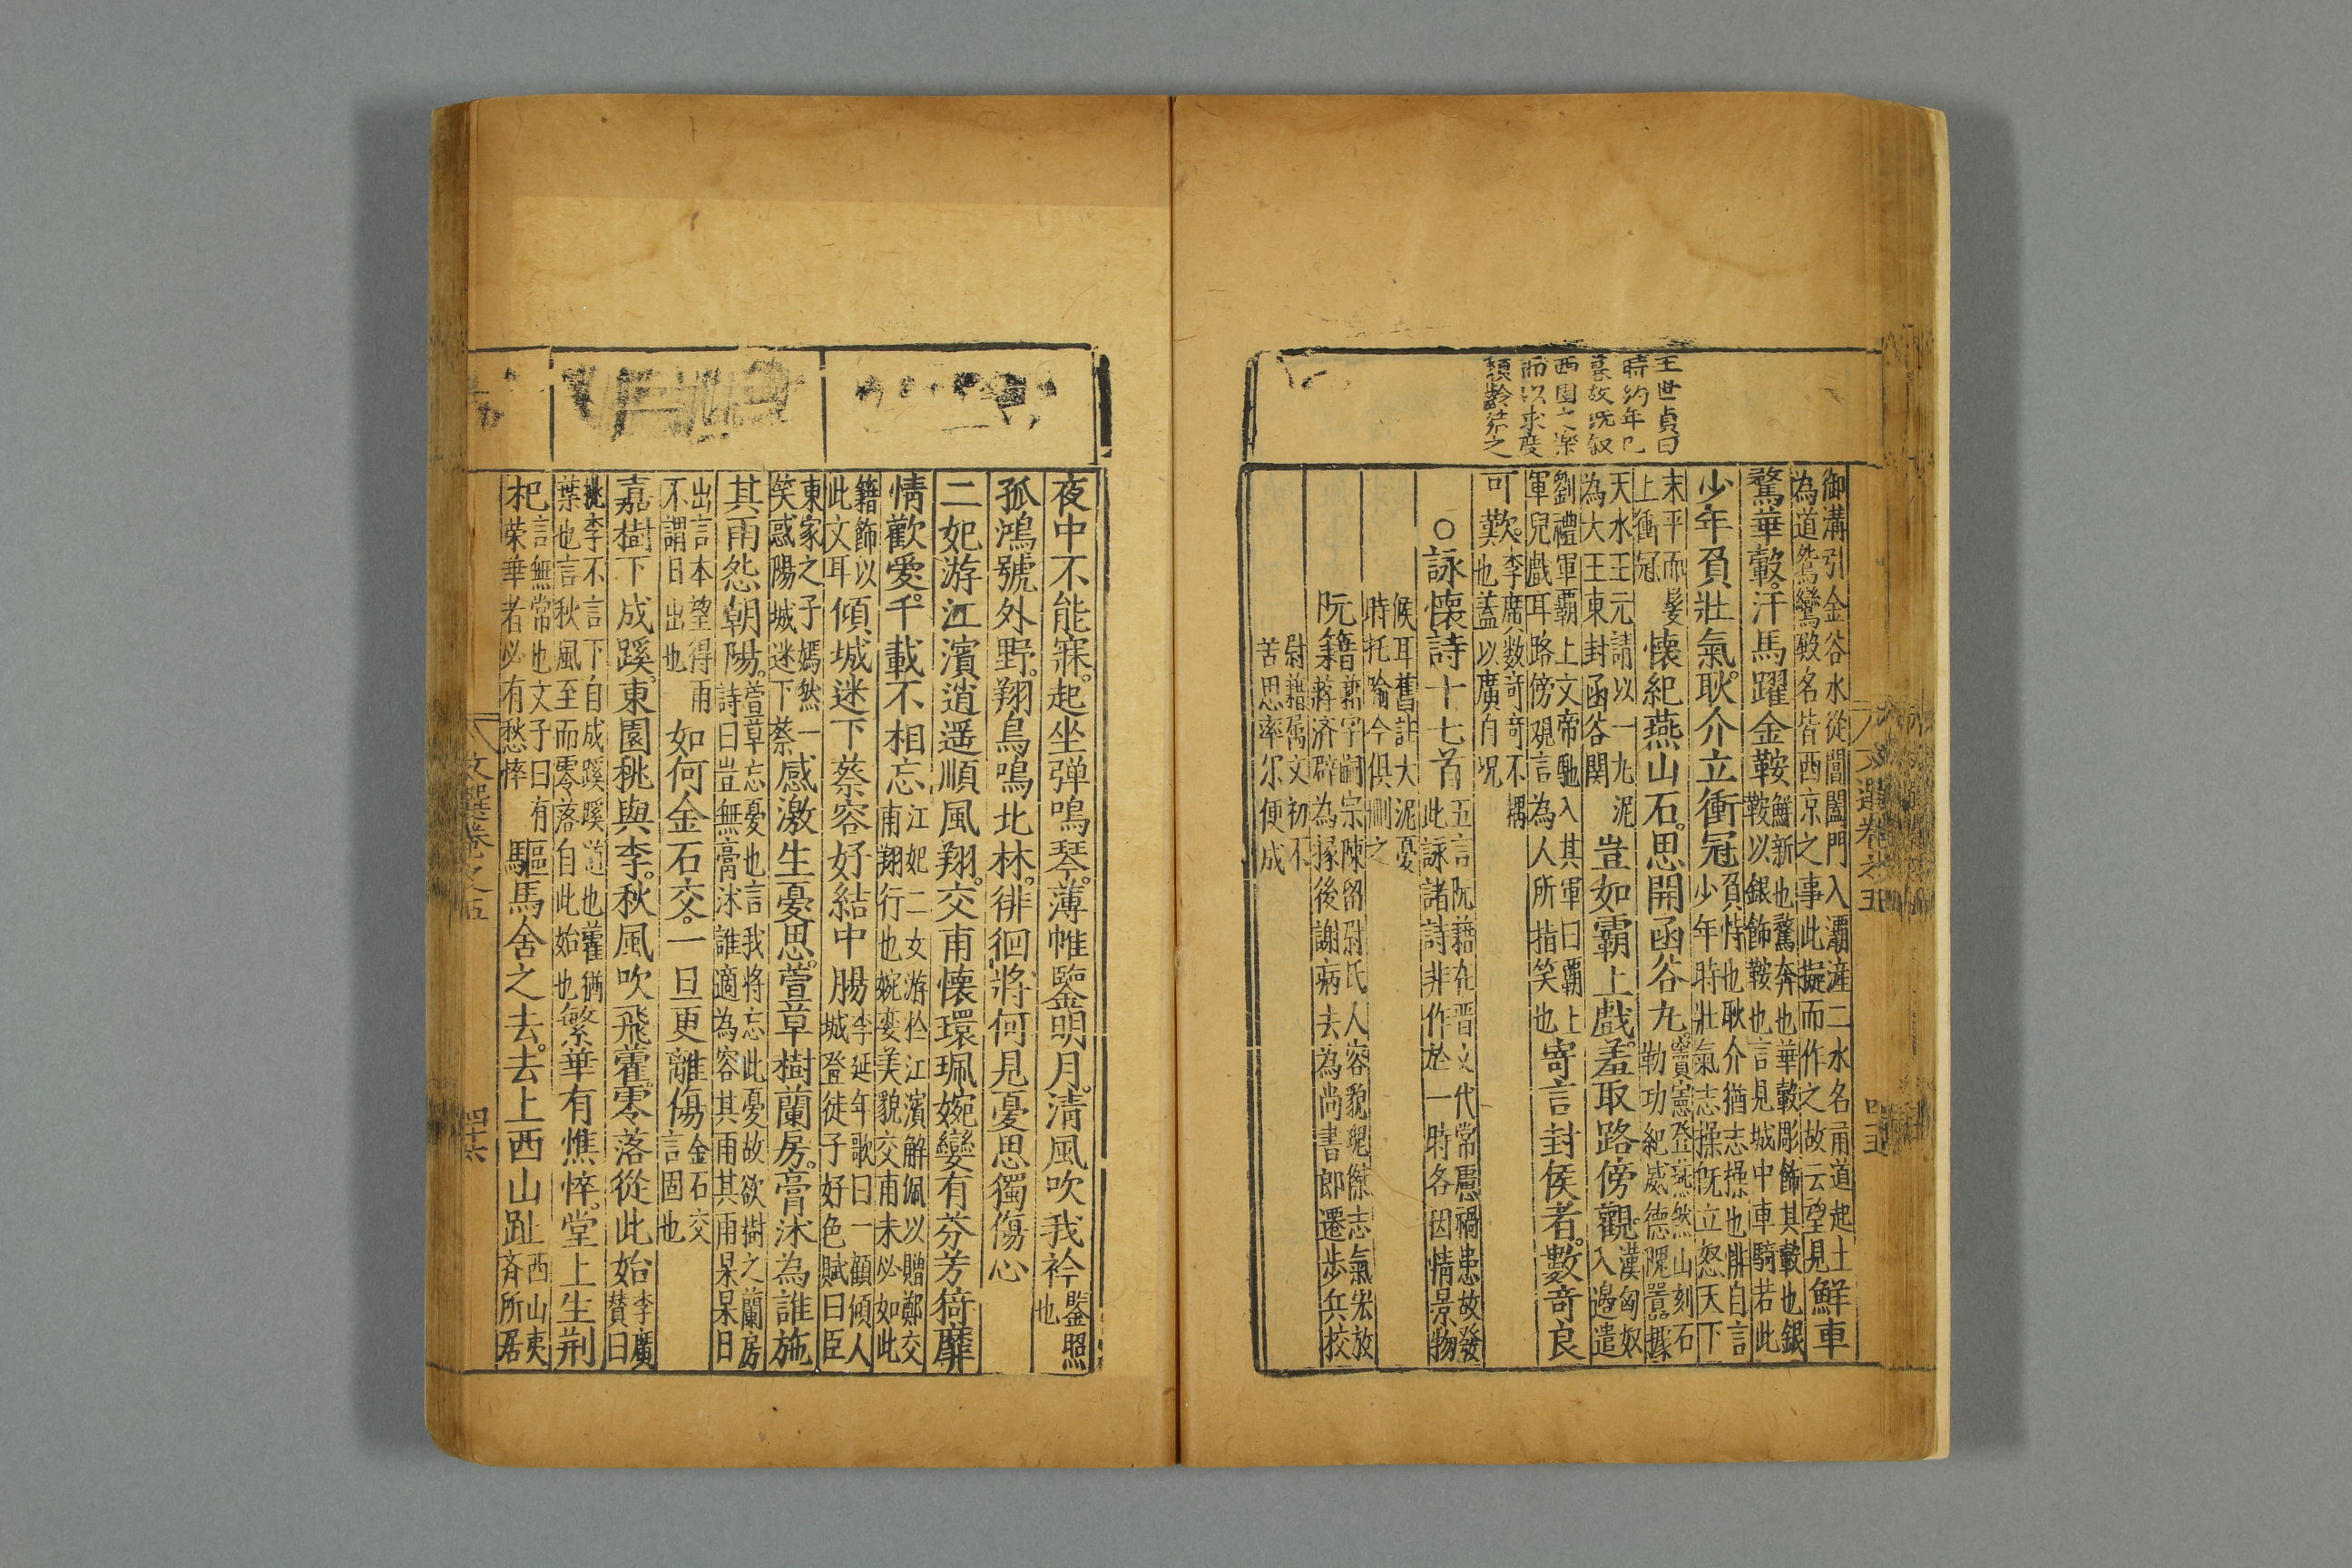 王世貞曰
時約年已
暮故既叙
西園之樂
而以求度
頹齡終之
御溝引金谷水從閶闔門入灞滻二水名甬道起土
為道鴛鸞殿名皆西京之事此擬而作之故云望見鮮車
驁華轂汗馬躍金鞍鮮新也驁奔也華轂彫飾其轂也銀
鞍以銀飾鞍也言見城中車騎若此
少年負壯氣耿介立衝冠負恃也耿介猶志操也悱自言
少年時壯氣志操既立怒天下
末平而髮
上衝冠懷紀燕山石思開函谷丸竇憲登燕然山刻石
勒功紀威德隗囂據
天水王元請以一丸泥
為大王東封函谷関豈如霸上戲羞取路傍觀漢匈奴
入邊遣
劉禮軍霸上文帝馳入其軍曰霸上
軍兒戲耳路傍觀言為人所指笑也寄言封侯者數奇良
可歎李廣数奇奇不耦
也蓋以廣自况
○詠懐詩十七首五言阮藉在晋文代常慮禍患故發
此詠諸詩非作於一時各因情景物
候耳舊註大泥憂
時托喻今俱刪之
阮籍籍字嗣宗陳留尉氏人容貌瓌傑志氣宏放
蒋济辟為掾後謝病去為尚書郎遷步兵校
尉籍属文初不
苦思率尔便成
文選卷之五
四十五
夜中不能寐起坐弹鳴琴薄帷鑒明月清風吹我衿鑒照
也
孤鴻號外野翔鳥鳴北林徘徊將何見憂思獨傷心
二妃游江濱逍遥順風翔交甫懐環珮婉孌有芬芳猗靡
情歡愛千載不相忘江妃二女游於江濱解佩以贈鄭交
甫翔行也婉孌美貌交甫未必如此
籍飾以
此文耳傾城迷下蔡容好結中腸李延年歌曰一顧傾人
城登徒子好色賦曰臣
東家之子嫣然一
笑惑陽城迷下蔡感激生憂思萱草樹蘭房膏沐為誰施
其雨怨朝陽萱草忘憂也言我将忘此憂故欲樹之蘭房
詩曰豈無膏沐誰適為容其雨其雨杲杲日
出言本望得雨
不謂日出也如何金石交一旦更離傷金石交
言固也
嘉樹下成蹊東園桃與李秋風吹飛藿零落從此始李廣
賛曰
桃李不言下自成蹊蹊道也藿猶
葉也言秋風至而零落自此始也繁華有憔悴堂上生荆
杞言無常也文子曰有
荣華者必有愁悴驅馬舍之去去上西山趾西山夷
斉所居
文選卷之五
四十六